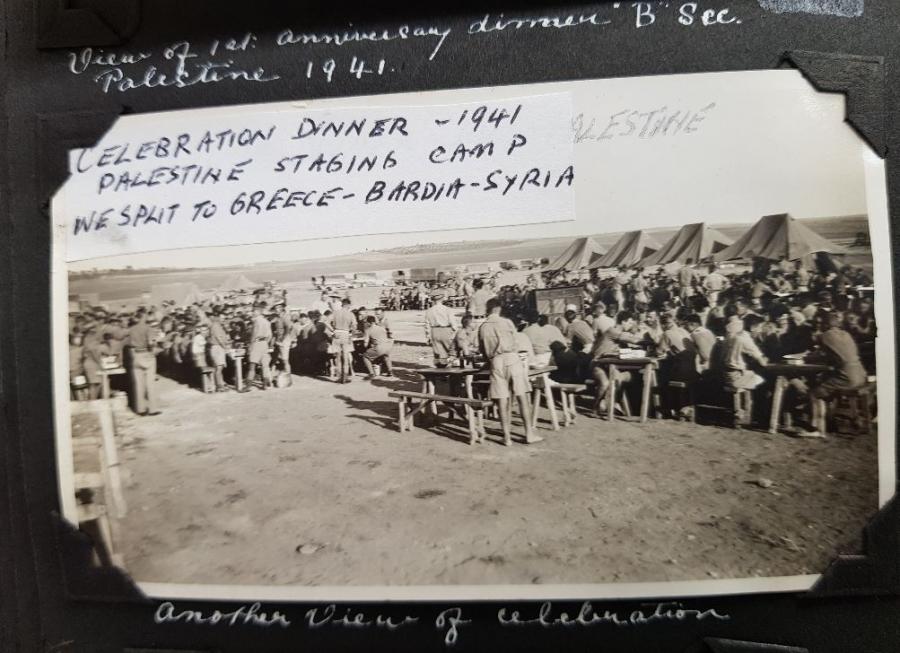 View of 1st anniversary dinner "B" Sec.
Palestine 1941.
CELEBRATION DINNER - 1941
PALESTINE
PALESTINE STAGING CAMP
WE SPLIT TO GREECE - BARDIA - SYRIA
Another View of celebration